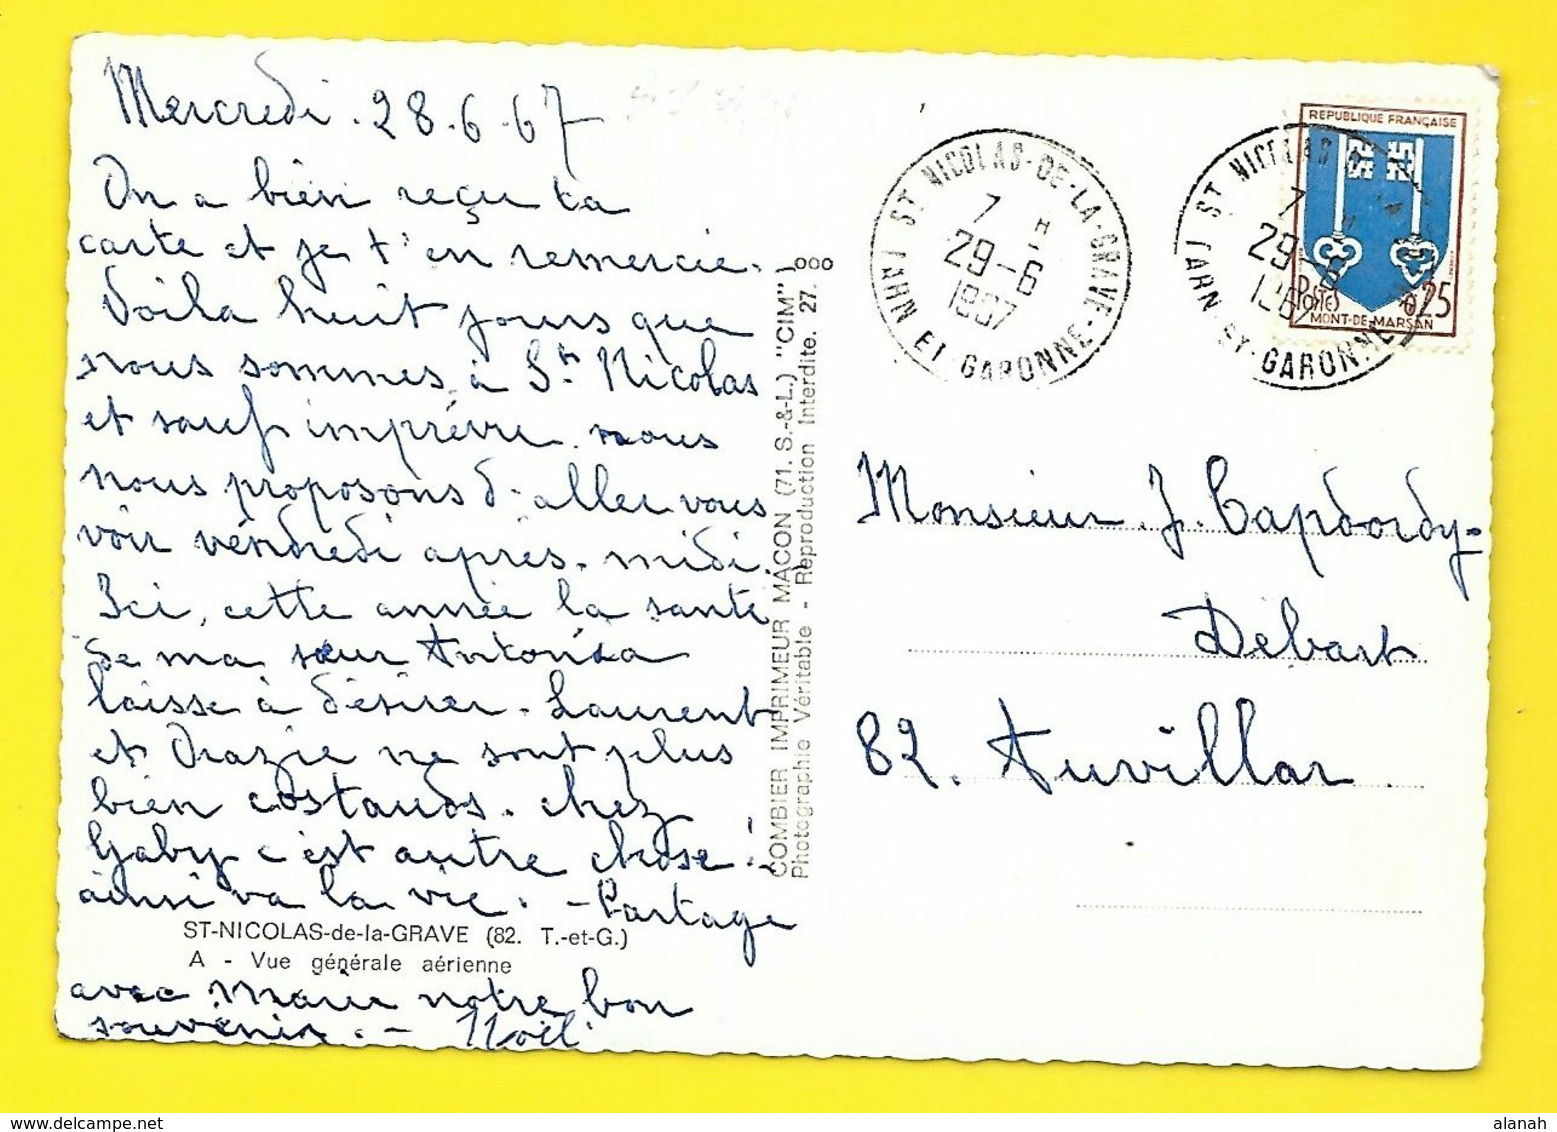 Mercredi. 28.6.67
On a bien reçu ta
carte et je t'en remercie.
Voila huit jours que
nous sommes à St Nicolas
et sauf imprévu nous
nous proposons d'aller vous
voir vendredi après-midi.
Ici, cette année la santé
de ma sœur Antonia
laisse à désirer. Laurent
et Orazie ne sont plus
bien costauds. chez
Gaby c'est autre chose!
ainsi va la vie. - Partage
ST-NICOLAS-de-la-GRAVE (82. T.-et-G.)
A - Vue générale aérienne
avec Marie notre bon
souvenir. -
COMBIER IMPRIMEUR MACON (71. S.-&-L.) "CIM"
Photographie Véritable - Reproduction Interdite. 27.000
ST NICOLAS-DE-LA-GRAVE
7 H
29-6
1967
TARN ET GARONNE
ST NICOLAS
7 H
29-6
1967
TARN ET GARONNE
REPUBLIQUE FRANÇAISE
POSTES 0,25
MONT-DE-MARSAN
Monsieur J. Capdordy-
Débart
82. Auvillar
alanah